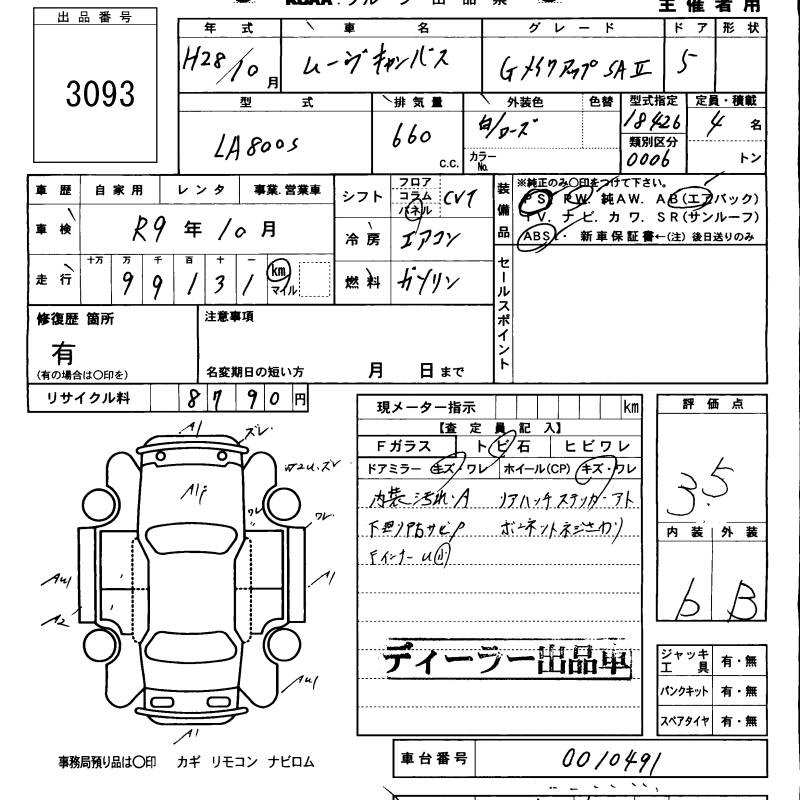 主催者用
出品番号
3093
年式 車名 グレード ドア 形状
H28/10月 ムーヴキャンバス Gメイクアップ SAⅡ 5
型式 排気量 外装色 色替 型式指定 定員・積載
LA800S 660 C.C. 白/ローズ 18426 4 名
カラーNo. 類別区分 0006 トン
車歴 自家用 レンタ 事業.営業車
車検 R9 年 10 月
走行 十万 万 千 百 十 一
99131 km マイル
シフト フロア コラム パネル CVT
冷房 エアコン
燃料 ガソリン
装備品 ※純正のみ〇印をつけて下さい。
PS. PW. 純AW. AB(エアバック)
TV. ナビ. カワ. SR(サンルーフ)
ABS. 新車保証書←(注) 後日送りのみ
セールスポイント
修復歴 箇所
有
(有の場合は〇印を)
注意事項
名変期日の短い方 月 日まで
リサイクル料 8790円
現メーター指示 km
【査定員記入】
Fガラス トビ石 ヒビワレ
ドアミラー キズ・ワレ ホイール(CP) キズ・ワレ
内装汚れ・A リアハッチステッカーアト
下廻り内サビP ボンネットネジさわり
Fインナー U小
ディーラー出品車
評価点
3.5
内装 外装
b B
ジャッキ工具 有・無
パンクキット 有・無
スペアタイヤ 有・無
A1
ズレ
ズレ
A1P
ワレ
ワレ
AU1
A2
A1
AU1
A1
事務局預り品は〇印 カギ リモコン ナビロム
車台番号 0010491